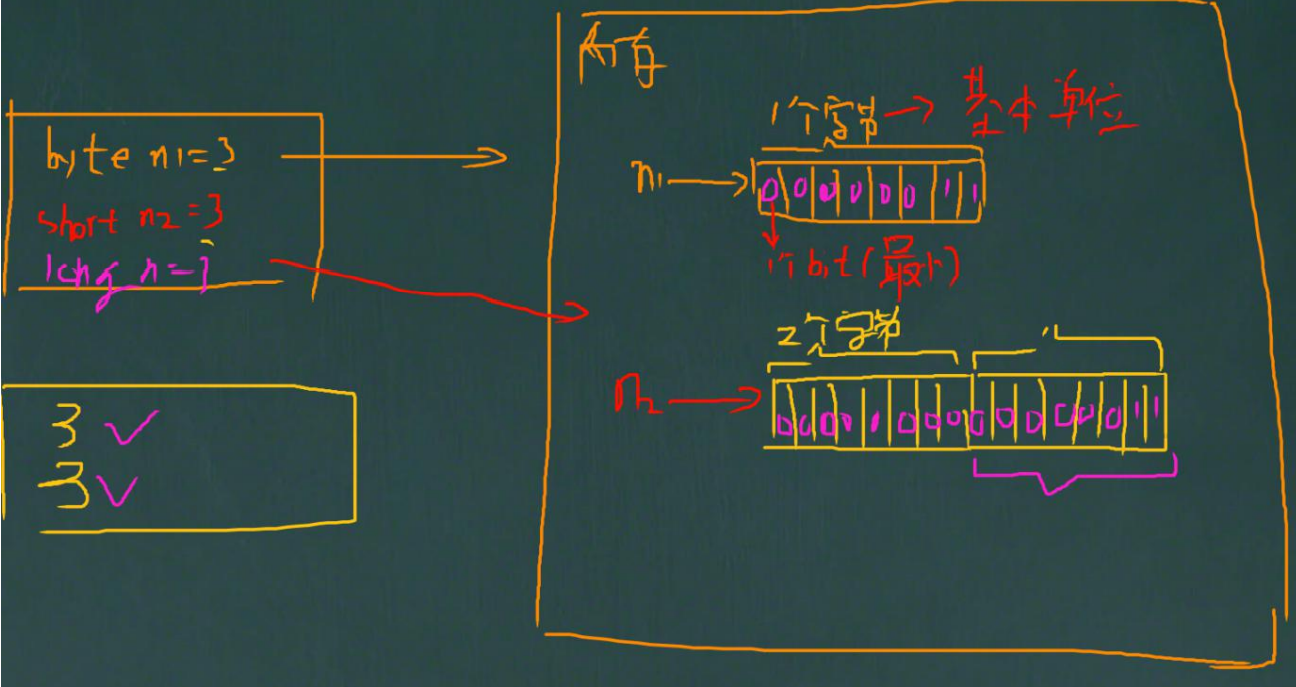 byte n1=3
short n2=3
long n=3
3
3
内存
1个字节 → 基本单位
n1 → 0 0 0 0 0 0 1 1
1个bit(最小)
2个字节
n2 → 0 0 0 0 0 0 0 0 0 0 0 0 0 1 1